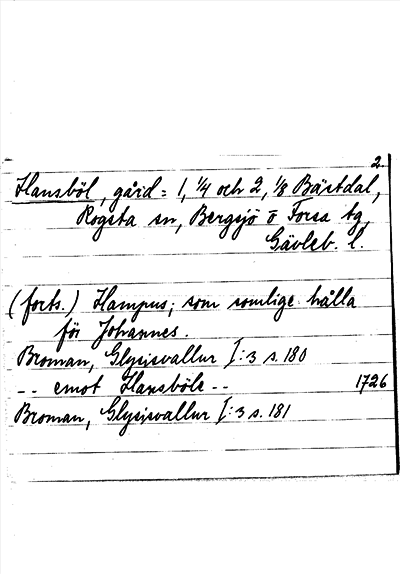 2.
Hansböl, gård = 1, 1/4 och 2, 1/8 Bästdal,
Rogsta sn, Bergsjö o Forsa tg,
Gävleb. l.
(forts.) Hampus; som somlige hålla
för Johannes.
Broman, Glysisvallur I:3 s. 180
-- emot Hansböle -- 1726
Broman, Glysisvallur I:3 s. 181